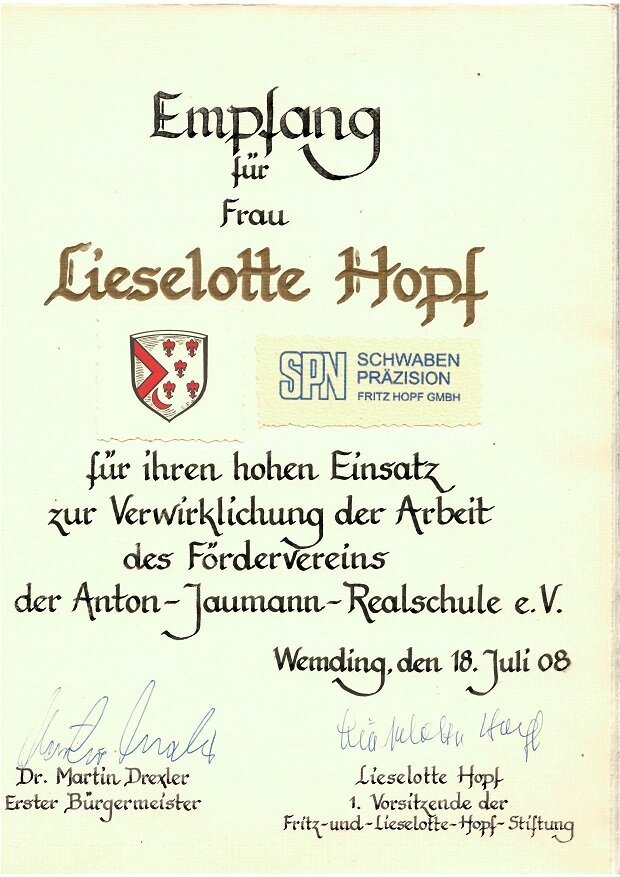 Empfang
für
Frau
Lieselotte Hopf
SPN SCHWABEN
PRÄZISION
FRITZ HOPF GMBH
für ihren hohen Einsatz
zur Verwirklichung der Arbeit
des Fördervereins
der Anton-Jaumann-Realschule e.V.
Wemding, den 18. Juli 08
Lieselotte Hopf
Dr. Martin Drexler
Erster Bürgermeister
Lieselotte Hopf
1. Vorsitzende der
Fritz-und-Lieselotte-Hopf-Stiftung